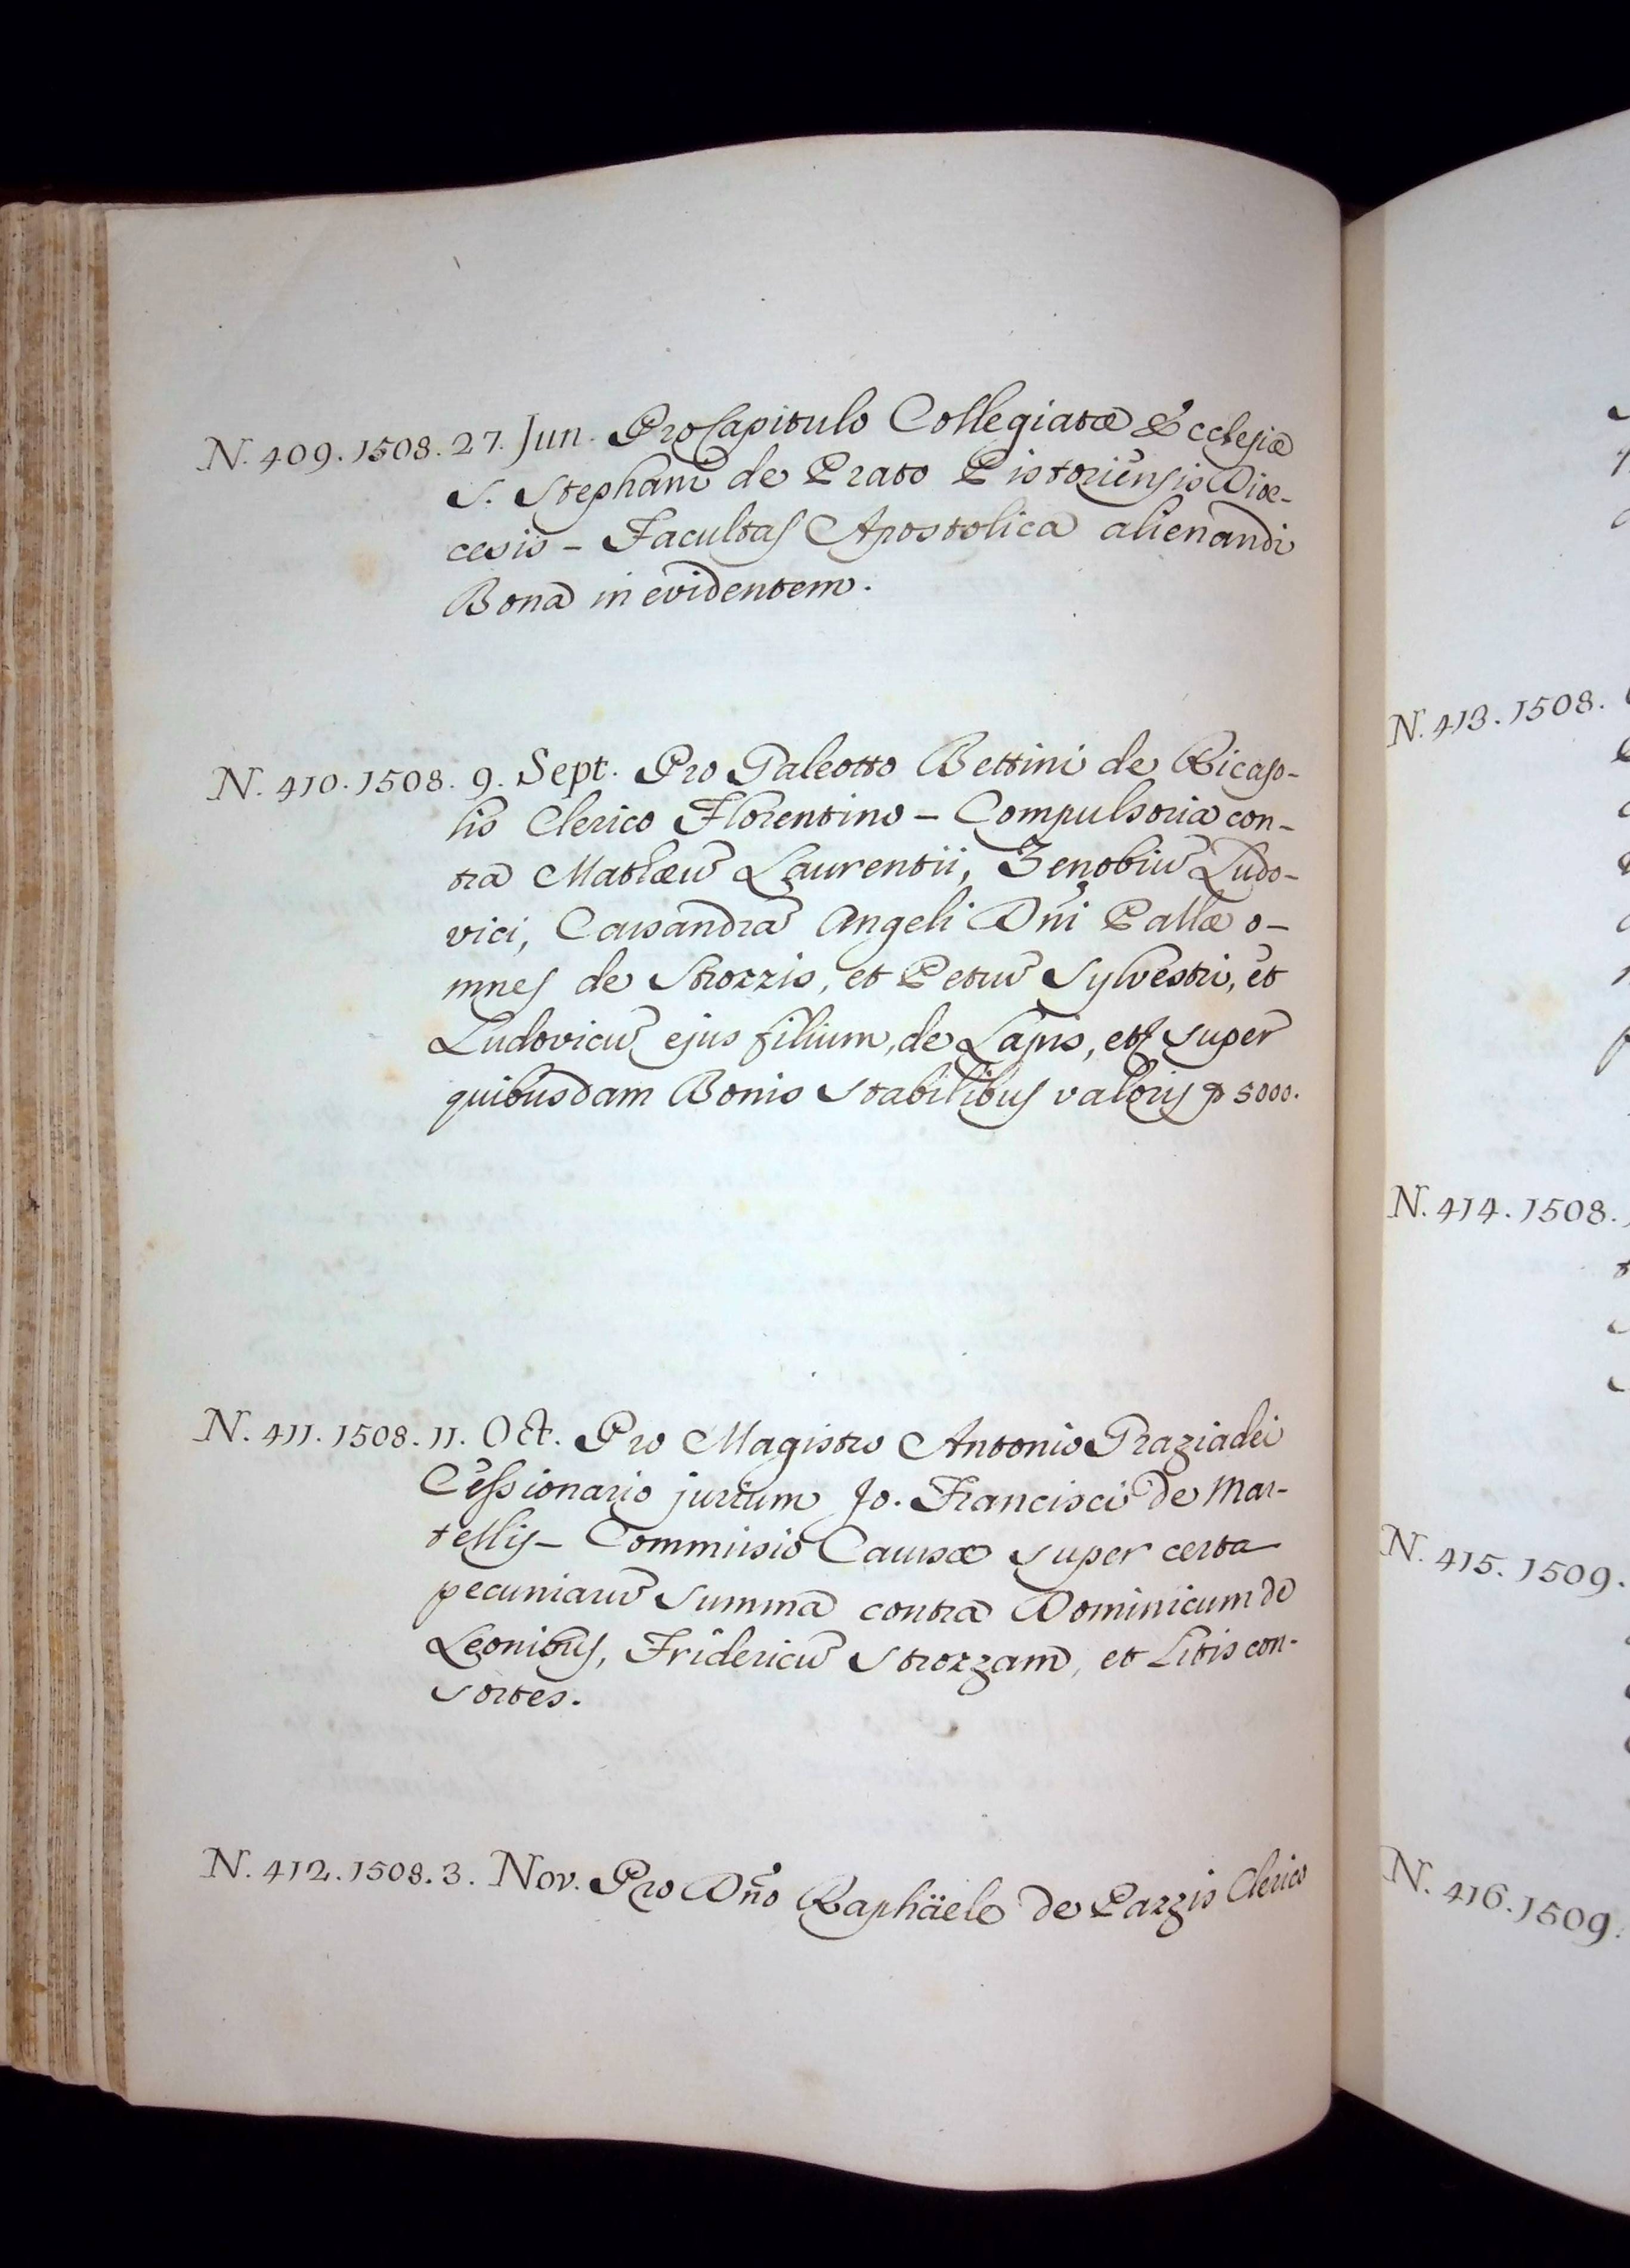 N. 409. 1508. 27. Jun. Pro Capitulo Collegiatæ Ecclesiæ
S. Stephani de Prato Pistoriensis Dioe-
cesis - Facultas Apostolica alienandi
Bona in evidentem.
N. 410. 1508. 9. Sept. Pro Galeotto Bettini de Ricaso-
lis Clerico Florentino - Compulsoria con-
tra Mathæū Laurentii, Zenobiū Ludo-
vici, Cassandrā Angeli Dñi Pallæ o-
mnes de Strozzis, et Petrū Sylvestri, et
Ludovicū ejus filium, de Lapis, et super
quibusdam Bonis Stabilibus valoris 5000.
N. 411. 1508. 11. Oct. Pro Magistro Antonio Graziadei
Cessionario jurium Jo. Francisci de Mar-
tellis - Commissio Causæ super certa
pecuniarū summa contra Dominicum de
Leonibus, Fridericū Strozzam, et Litis con-
sortes.
N. 412. 1508. 3. Nov. Pro Dño Raphäele de Pazzis Clerico
N. 413. 1508.
N. 414. 1508.
N. 415. 1509.
N. 416. 1509.